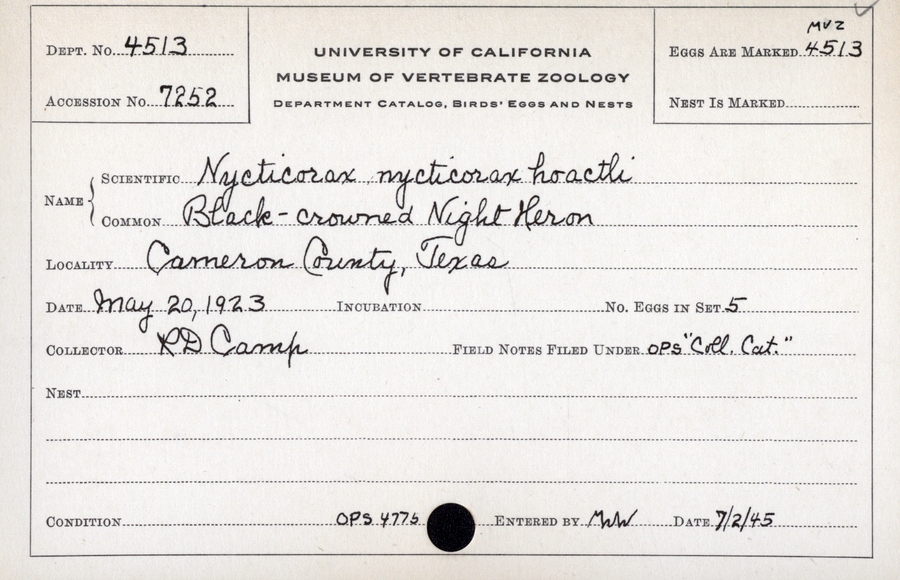 MVZ
DEPT. No. 4513
UNIVERSITY OF CALIFORNIA
EGGS ARE MARKED 4513
MUSEUM OF VERTEBRATE ZOOLOGY
ACCESSION No. 7252
DEPARTMENT CATALOG, BIRDS' EGGS AND NESTS
NEST IS MARKED
NAME { SCIENTIFIC Nycticorax nycticorax hoactli
COMMON Black-crowned Night Heron
LOCALITY Cameron County, Texas
DATE May 20, 1923 INCUBATION No. EGGS IN SET 5
COLLECTOR RD Camp FIELD NOTES FILED UNDER OPS "Coll. Cat."
NEST
CONDITION OPS 4775 ENTERED BY DATE 7/2/45